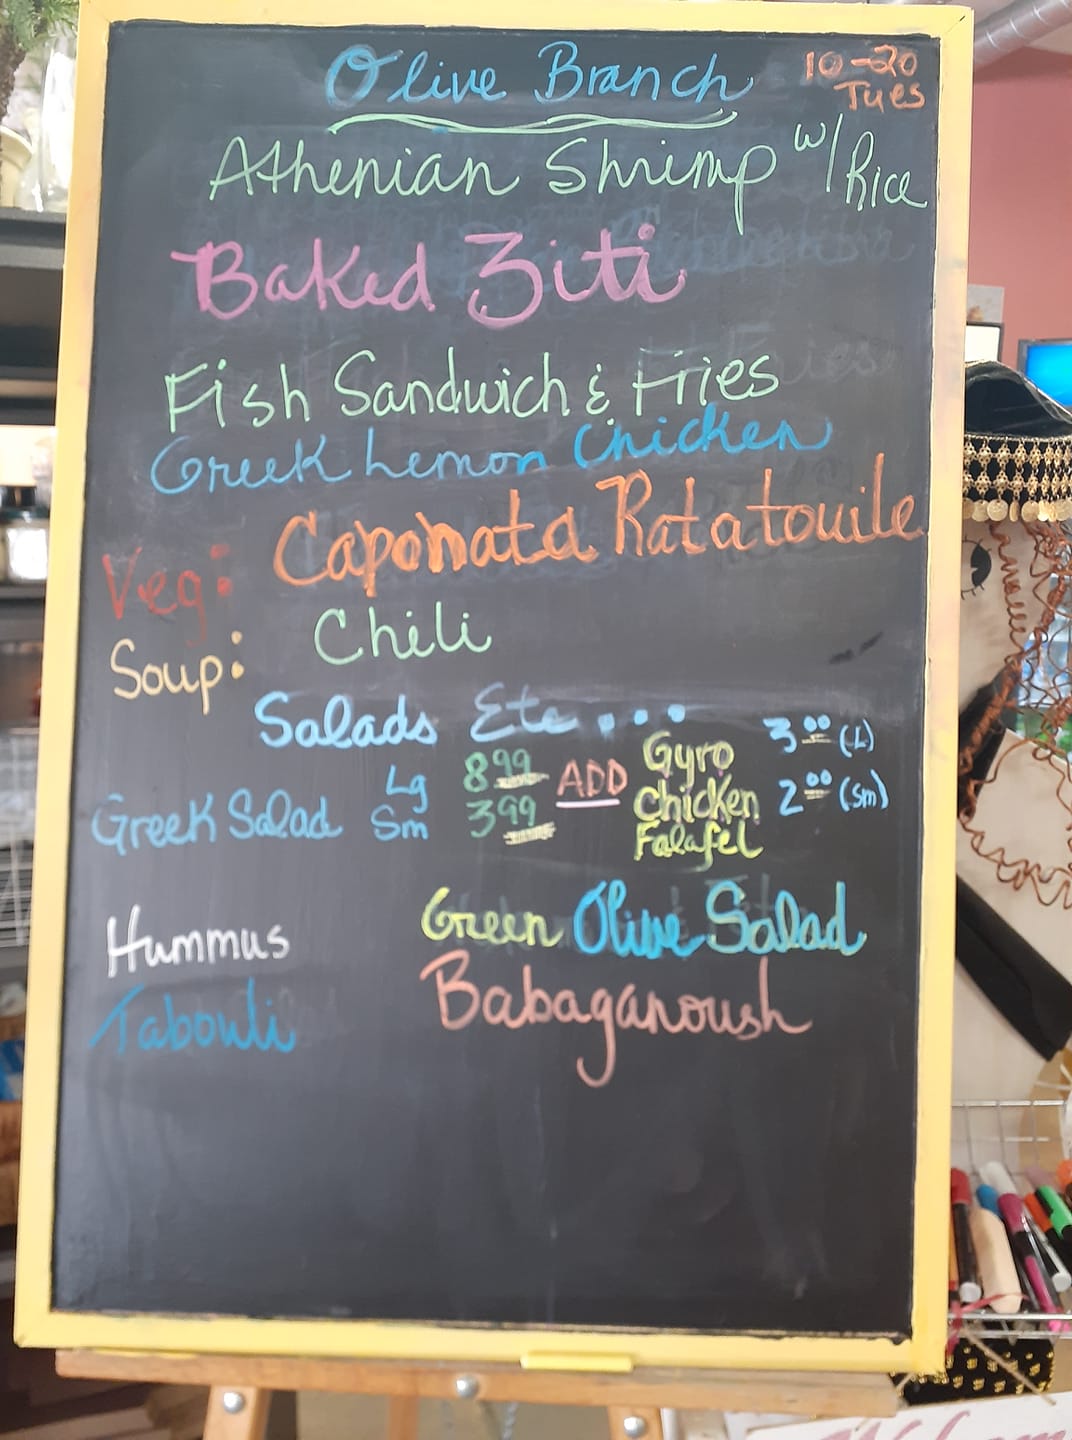 Olive Branch
10-20
Tues
Athenian Shrimp w/ Rice
Baked Ziti
Fish Sandwich & Fries
Greek Lemon Chicken
Veg: Caponata Ratatouile
Soup: Chili
Salads Etc...
Greek Salad Lg 8.99 ADD Gyro 3.00 (L)
Sm 3.99 Chicken 2.00 (Sm)
Falafel
Hummus Green Olive Salad
Tabouli Babaganoush